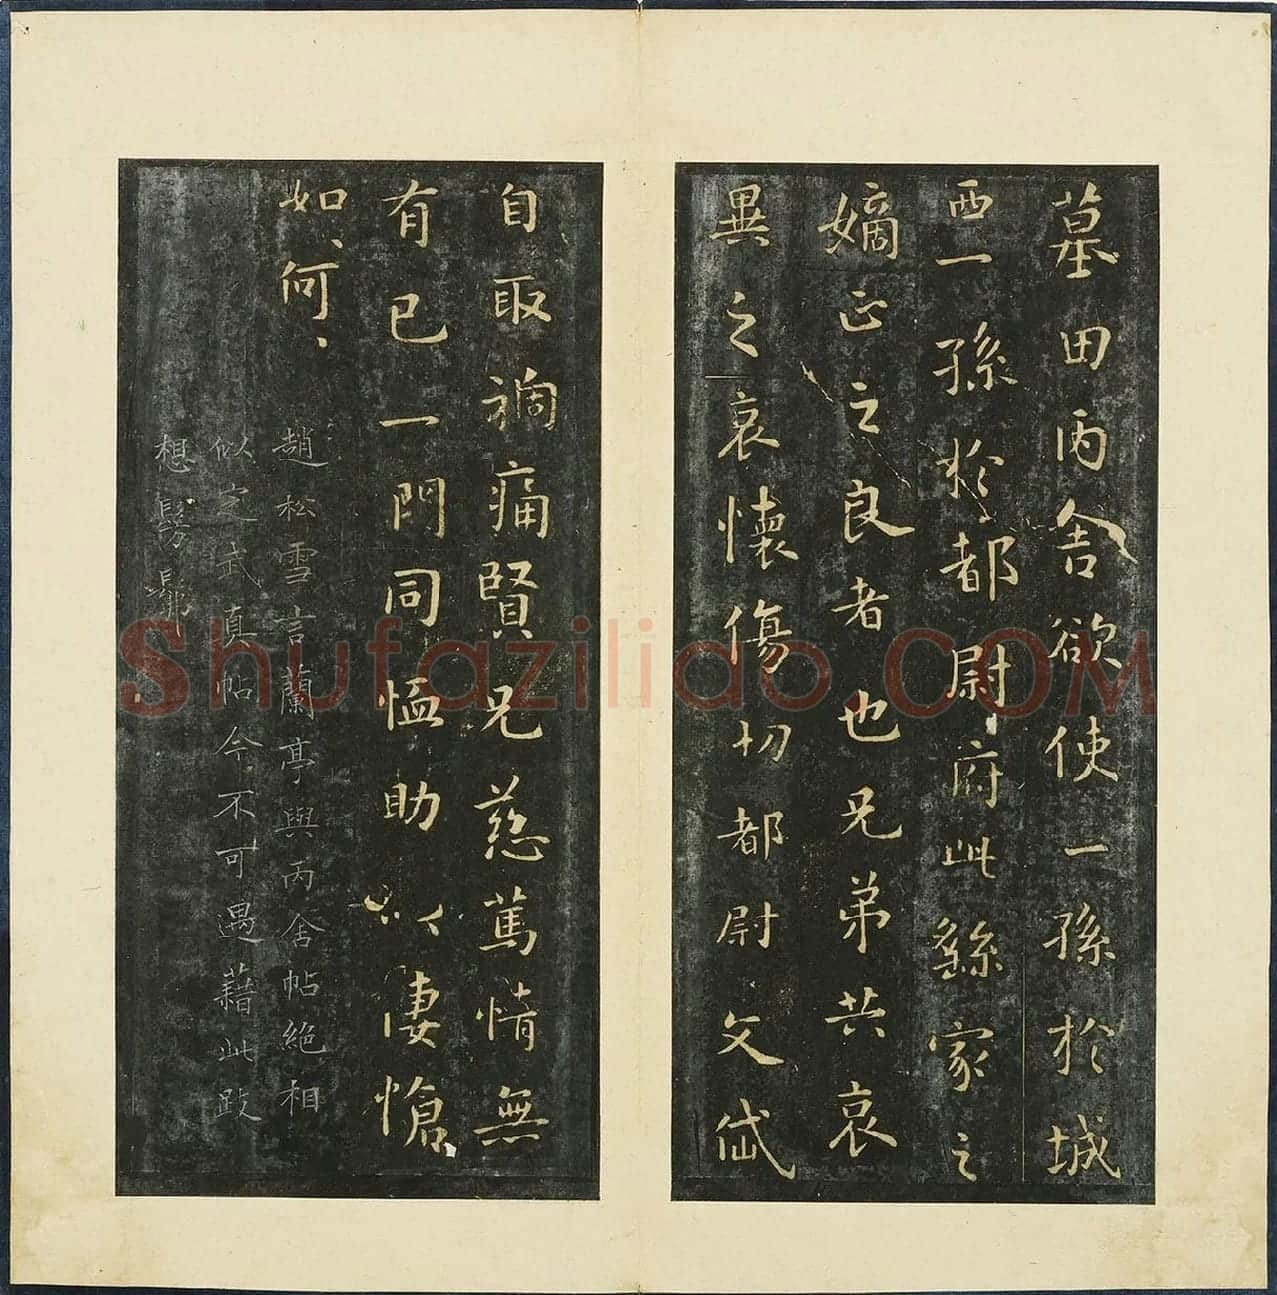 墓田丙舍欲使一孫於城
西一孫於都尉府此繇家之
嫡正之良者也兄弟共哀
異之哀懷傷切都尉文岱
自取禍痛賢兄慈篤情無
有已一門同恤助以悽愴
如、何、
趙松雪言蘭亭與丙舍帖絶相
似定武真帖今不可遇藉此
想髣髴
Shufazilido.COM